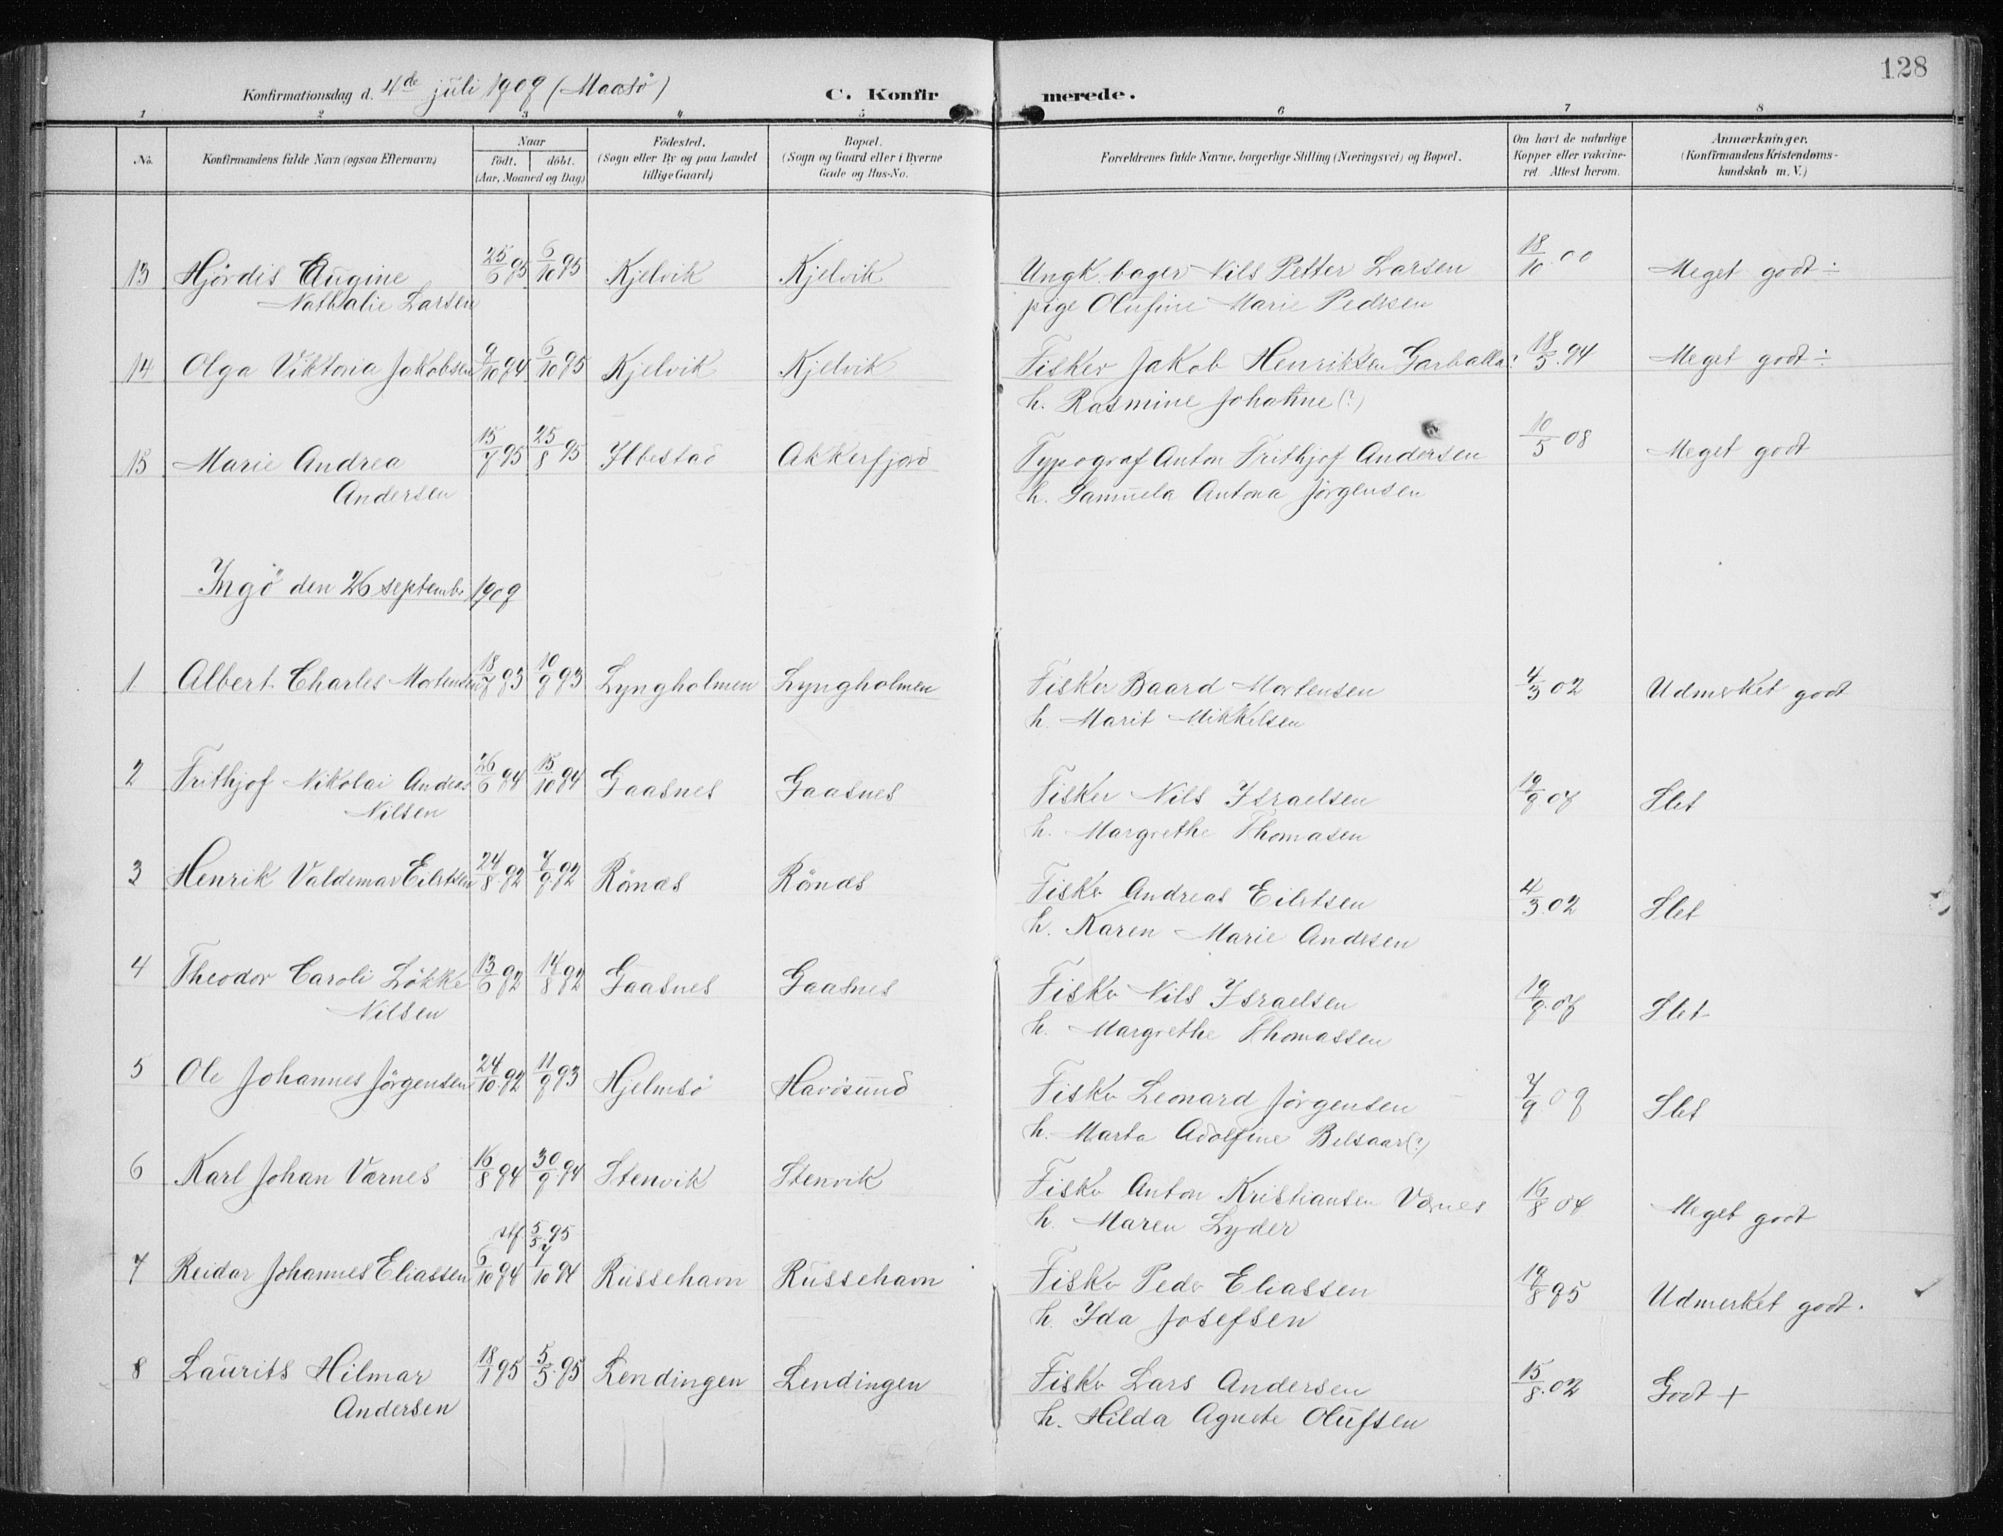 128
Konfirmationsdag d. 4de juli 1909 (Maasö) C. Konfirmerede.
1 2 3 4 5 6 7 8
No. Konfirmandens fulde Navn (ogsaa Efternavn) Naar födt. döbt. (Aar, Maaned og Dag) Födested. (Sogn eller By og paa Landet tillige Gaard) Bopæl. (Sogn og Gaard eller i Byerne Gade og Hus-No. Forældrenes fulde Navne, borgerlige Stilling (Næringsvei) og Bopæl. Om havt de naturlige Kopper eller vakcineret. Attest herom. Anmærkninger. (Konfirmandens Kristendomskundskab m. V.)
13 Hjördis Eugine 25/6 95 6/10 95 Kjelvik Kjelvik Ungk. bager Nils Petter Larsen 18/10 00 Meget godt ÷
Nathalie Larsen pige Olufine Marie Pedersen
14 Olga Viktoria Jakobsen 9/10 94 6/10 95 Kjelvik Kjelvik Fisker Jakob Henriksen Garballa? 18/5 94 Meget godt ÷
h. Rasmine Johanne (?)
15 Marie Andrea 15/7 95 25/8 95 Ibestad Akkerfjord Typograf Anton Frithjof Andersen 10/5 08 Meget godt
Andersen h. Samuela Antona Jörgensen
Ingö den 26 september 1909
1 Albert Charles Mortensen 18/7 93 10/9 93 Lyngholmen Lyngholmen Fisker Baard Mortensen 4/3 02 Udmerket godt
h. Marit Mikkelsen
2 Frithjof Nikolai Andreas 26/6 94 15/10 94 Gaasnes Gaasnes Fisker Nils Israelsen 19/9 07 Slet
Nilsen h. Margrethe Thomasen
3 Henrik Valdemar Eilertsen 24/8 92 7/9 92 Rönæs Rönæs Fisker Andreas Eilertsen 4/3 02 Slet
h. Karen Marie Andersen
4 Theodor Caroli Lökke 13/6 92 14/8 92 Gaasnes Gaasnes Fisker Nils Israelsen 19/9 07 Slet
Nilsen h. Margrethe Thomassen
5 Ole Johannes Jörgensen 24/10 92 11/9 93 Hjelmsö Havösund Fisker Leonard Jörgensen 7/9 09 Slet
h. Marta Adolfine Belsaar (?)
6 Karl Johan Værnes 16/8 94 30/9 94 Stenvik Stenvik Fisker Anton Kristiansen Værnes 16/8 04 Meget godt
h. Maren Lyder
stf. 5/5 95
7 Reidar Johannes Eliassen 6/10 94 7/10 94 Russehavn Russehavn Fisker Peder Eliassen 19/8 95 Udmerket godt.
h. Ida Josefsen
8 Laurits Hilmar 18/1 95 5/5 95 Lendingen Lendingen Fisker Lars Andersen 15/8 02 Godt +
Andersen h. Hilda Agnete Olufsen